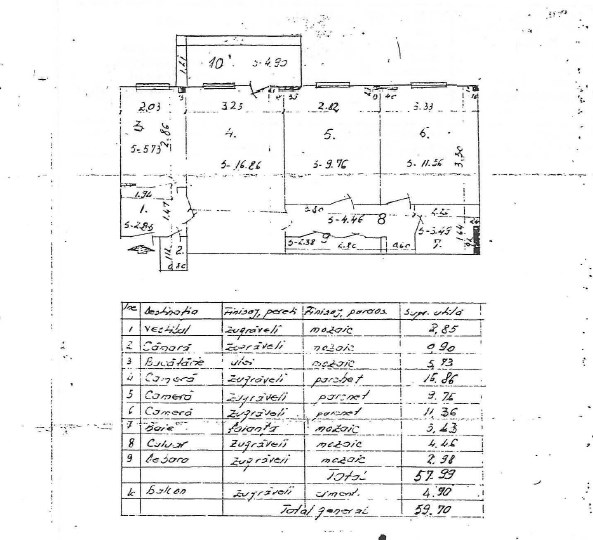 10' S-4.90
1.21
2.03 3.25 2.82 3.33
3 4. 5. 6.
2.86
S-5.73 S-16.86 S-9.76 S-11.36
3.30
1.94
1. 1.47 S-4.46 8 2.25
S-2.85 S-2.38 9 S-3.43
1.64
2 2.80 0.60 7.
1.12
0.80
Destinatia Finisaj, pereti Finisaj, pardos. Supr. utilă
1 Vestibul Zugrăveli mozaic 2,85
2 Cămară Zugrăveli mozaic 0,90
3 Bucătărie ulei mozaic 5,73
4 Cameră Zugrăveli parchet 16,86
5 Cameră Zugrăveli parchet 9.76
6 Cameră Zugrăveli parchet 11.36
7 Baie faianta mozaic 3,43
8 Culoar Zugrăveli mozaic 4.46
9 Debara Zugrăveli mozaic 2.38
Total 57.99
Balcon Zugrăveli ciment. 4.90
Total general 59.70